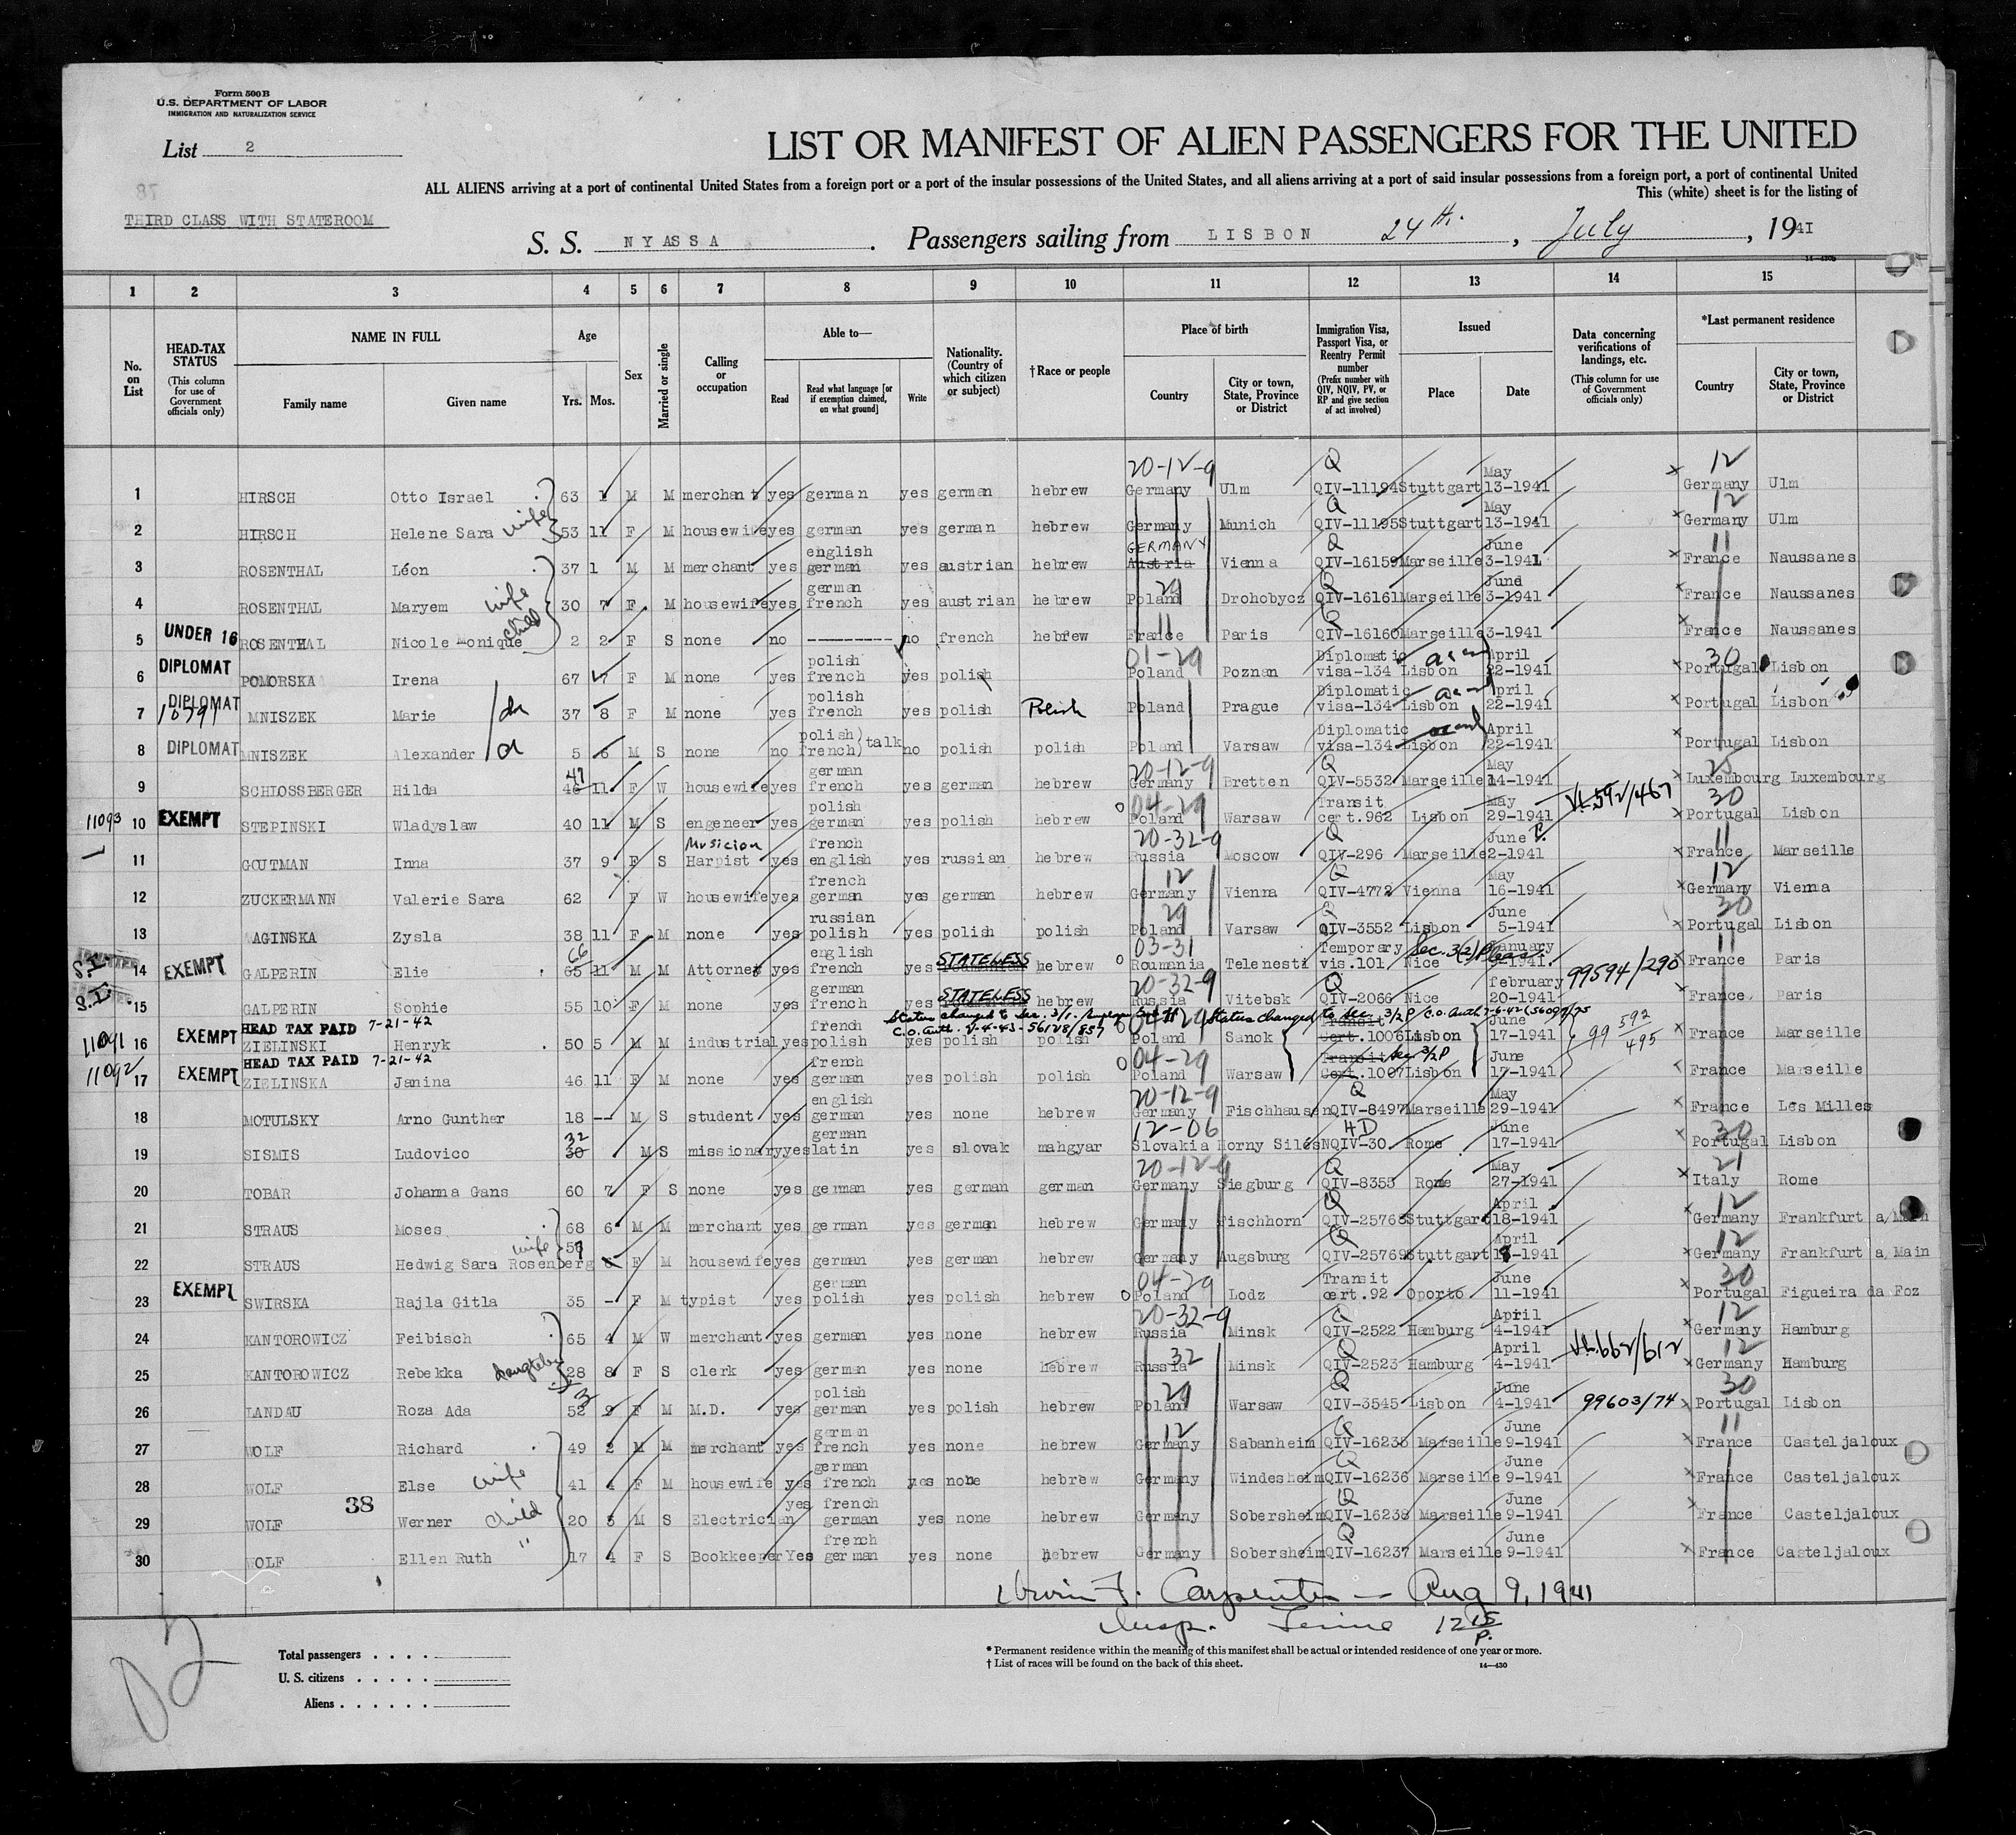 Form 500 B
U.S. DEPARTMENT OF LABOR
IMMIGRATION AND NATURALIZATION SERVICE
List 2
LIST OR MANIFEST OF ALIEN PASSENGERS FOR THE UNITED
ALL ALIENS arriving at a port of continental United States from a foreign port or a port of the insular possessions of the United States, and all aliens arriving at a port of said insular possessions from a foreign port, a port of continental United
This (white) sheet is for the listing of
THIRD CLASS WITH STATEROOM
S. S. NYASSA . Passengers sailing from LISBON 24th. , July , 1941
1 2 3 4 5 6 7 8 9 10 11 12 13 14 15
No. on List
HEAD-TAX STATUS (This column for use of Government officials only)
NAME IN FULL Family name Given name
Age Yrs. Mos.
Sex
Married or single
Calling or occupation
Able to— Read Read what language [or if exemption claimed, on what ground] Write
Nationality. (Country of which citizen or subject)
†Race or people
Place of birth Country City or town, State, Province or District
Immigration Visa, Passport Visa, or Reentry Permit number (Prefix number with QIV, NQIV, PV, or RP and give section of act involved)
Issued Place Date
Data concerning verifications of landings, etc. (This column for use of Government officials only)
*Last permanent residence Country City or town, State, Province or District
1 HIRSCH Otto Israel 63 1 M M merchant yes german yes german hebrew 20-12-9 Germany Ulm Q QIV-11194 Stuttgart May 13-1941 12 Germany Ulm
2 HIRSCH Helene Sara wife 53 11 F M housewife yes german yes german hebrew Germany Munich Q QIV-11195 Stuttgart May 13-1941 12 Germany Ulm
3 ROSENTHAL Léon 37 1 M M merchant yes english german yes austrian hebrew GERMANY Austria Vienna Q QIV-16159 Marseille June 3-1941 11 France Naussanes
4 ROSENTHAL Maryem wife 30 7 F M housewife yes german french yes austrian hebrew 29 Poland Drohobycz Q QIV-16161 Marseille June 3-1941 France Naussanes
5 UNDER 16 ROSENTHAL Nicole Monique child 2 2 F S none no --------- no french hebrew 11 France Paris Q QIV-16160 Marseille 3-1941 France Naussanes
6 DIPLOMAT POMORSKA Irena 67 7 F M none yes polish french yes polish 01-29 Poland Poznan Diplomatic visa-134 Lisbon April 22-1941 30 Portugal Lisbon
7 DIPLOMAT 10791 MNISZEK Marie 37 8 F M none yes polish french yes polish Polish Poland Prague Diplomatic visa-134 Lisbon April 22-1941 Portugal Lisbon
8 DIPLOMAT MNISZEK Alexander 5 6 M S none no polish) french) talk no polish polish Poland Warsaw Diplomatic visa-134 Lisbon April 22-1941 Portugal Lisbon
9 SCHLOSSBERGER Hilda 47 46 11 F W housewife yes german french yes german hebrew 20-12-9 Germany Bretten Q QIV-5532 Marseille May 14-1941 25 Luxembourg Luxembourg
11093 10 EXEMPT STEPINSKI Wladyslaw 40 11 M S engeneer yes polish german yes polish hebrew 04-29 Poland Warsaw Transit cert.962 Lisbon May 29-1941 592/467 30 Portugal Lisbon
11 GOUTMAN Inna 37 9 F S Musician Harpist yes french english yes russian hebrew 20-32-9 Russia Moscow Q QIV-296 Marseille June 2-1941 11 France Marseille
12 ZUCKERMANN Valerie Sara 62 F W housewife yes french german yes german hebrew 12 Germany Vienna Q QIV-4772 Vienna May 16-1941 12 Germany Vienna
13 WAGINSKA Zysla 38 11 F M none yes russian polish yes polish polish 29 Poland Warsaw Q QIV-3552 Lisbon June 5-1941 30 Portugal Lisbon
S.I. 14 EXEMPT GALPERIN Elie 66 65 11 M M Attorney yes english french yes STATELESS hebrew 03-31 Roumania Telenesti Temporary vis.101 Nice Sec. 3(2) January 1941 99594/290 11 France Paris
S.I. 15 GALPERIN Sophie 55 10 F M none yes german french yes STATELESS hebrew 20-32-9 Russia Vitebsk Q QIV-2066 Nice february 20-1941 France Paris
Status changed to Sec. 3/1. C.O. Auth. V-4-43-56128/857 Status changed to Sec. 3/2 P C.O. Auth. 7-6-42
11091 16 EXEMPT HEAD TAX PAID 7-21-42 ZIELINSKI Henryk 50 5 M M industrial yes french polish yes polish polish 04-29 Poland Sanok Transit Cert.1006 Lisbon June 17-1941 99 592 495 France Marseille
11092 17 EXEMPT HEAD TAX PAID 7-21-42 ZIELINSKA Janina 46 11 F M none yes french german yes polish polish 04-29 Poland Warsaw Transit Sec 3/2P Cert.1007 Lisbon June 17-1941 France Marseille
18 MOTULSKY Arno Gunther 18 -- M S student yes english german yes none hebrew 20-12-9 Germany Fischhausen Q QIV-8497 Marseille May 29-1941 France Les Milles
19 SISMIS Ludovico 32 30 M S missionary yes german latin yes slovak mahgyar 12-06 Slovakia Horny Siles HD NQIV-30 Rome June 17-1941 30 Portugal Lisbon
20 TOBAR Johanna Gans 60 7 F S none yes german yes german german 20-12-9 Germany Siegburg Q QIV-8353 Rome May 27-1941 21 Italy Rome
21 STRAUS Moses 68 6 M M merchant yes german yes german hebrew Germany Fischhorn Q QIV-25768 Stuttgart April 18-1941 12 Germany Frankfurt a/Main
22 STRAUS Hedwig Sara Rosenberg wife F M housewife yes german yes german hebrew Germany Augsburg Q QIV-25769 Stuttgart April 18-1941 12 Germany Frankfurt a,Main
23 EXEMPT SWIRSKA Rajla Gitla 35 - F M typist yes german polish yes polish hebrew 04-29 Poland Lodz Transit cert.92 Oporto June 11-1941 30 Portugal Figueira da Foz
24 KANTOROWICZ Feibisch 65 4 M W merchant yes german yes none hebrew 20-32-9 Russia Minsk Q QIV-2522 Hamburg April 4-1941 662/612 12 Germany Hamburg
25 KANTOROWICZ Rebekka daughter 28 8 F S clerk yes german yes none hebrew 32 Russia Minsk Q QIV-2523 Hamburg April 4-1941 12 Germany Hamburg
26 LANDAU Roza Ada 52 3 9 F M M.D. yes polish german yes polish hebrew 29 Poland Warsaw Q QIV-3545 Lisbon June 4-1941 99603/74 30 Portugal Lisbon
27 WOLF Richard 49 2 M M merchant yes german french yes none hebrew 12 Germany Sabanheim Q QIV-16235 Marseille June 9-1941 11 France Casteljaloux
28 WOLF Else wife 41 4 F M housewife yes german french yes none hebrew Germany Windesheim Q QIV-16236 Marseille June 9-1941 France Casteljaloux
29 WOLF 38 Werner child 20 3 M S Electrician yes french german yes none hebrew Germany Sobersheim Q QIV-16238 Marseille June 9-1941 France Casteljaloux
30 WOLF Ellen Ruth " 17 4 F S Bookkeeper Yes french german yes none hebrew Germany Sobersheim Q QIV-16237 Marseille June 9-1941 France Casteljaloux
Irvin F. Carpenter — Aug 9, 1941
Insp. 12 15 P.
Total passengers . . . .
U. S. citizens . . . . .
Aliens . . . . . .
* Permanent residence within the meaning of this manifest shall be actual or intended residence of one year or more.
† List of races will be found on the back of this sheet.
14—430